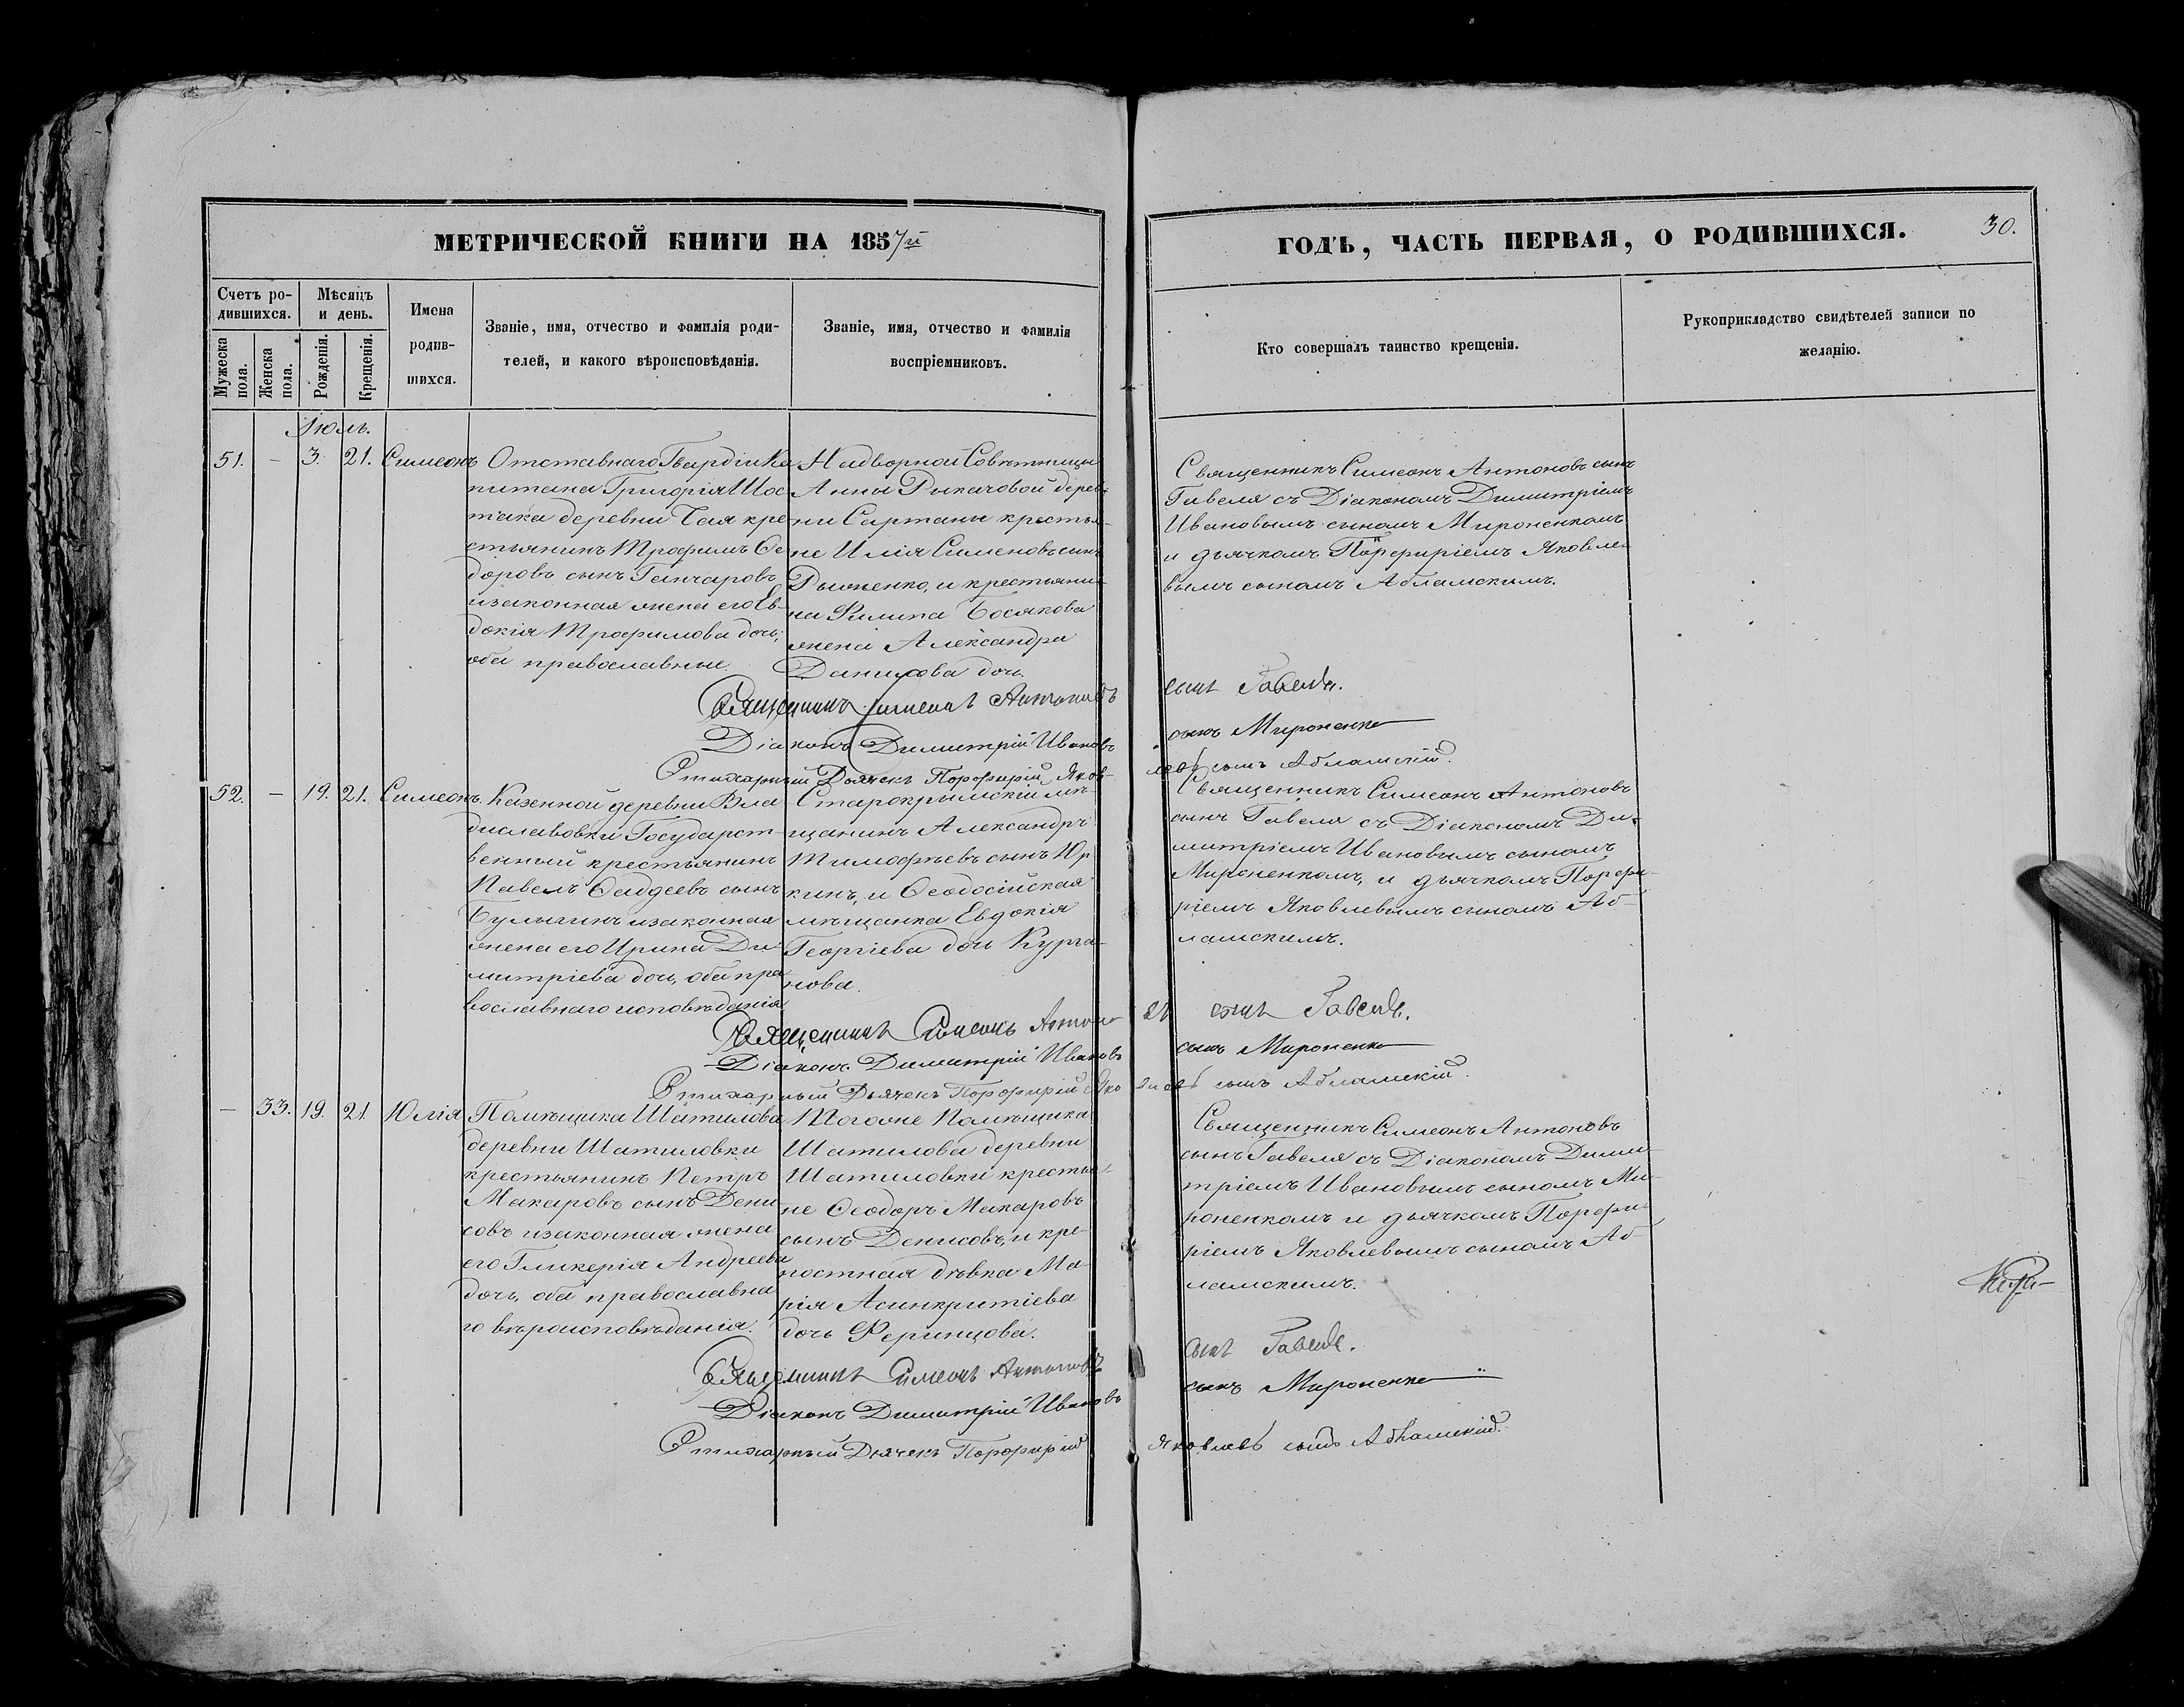 МЕТРИЧЕСКОЙ КНИГИ НА 1857й
ГОДЪ, ЧАСТЬ ПЕРВАЯ, О РОДИВШИХСЯ.
30.
Счетъ ро-
дившихся.
Мужеска
пола.
Женска
пола.
Мѣсяцъ
и день.
Рожденія.
Крещенія.
Имена
родив-
шихся.
Званіе, имя, отчество и фамилія роди-
телей, и какого вѣроисповѣданія.
Званіе, имя, отчество и фамилія
воспріемниковъ.
Кто совершалъ таинство крещенія.
Рукоприкладство свидѣтелей записи по
желанію.
Іюль.
51. – 3. 21. Симеонъ
Отставнаго Гвардіи Ка
питана Григорія Шос
така деревни Чая кре
стьянинъ Трофимъ Ѳе
доровъ сынъ Ганчаровъ
изаконная жена его Ев-
докія Трофимова дочь;
оба православные.
Надворной Совѣтницы
Анны Рыкачовой дерев-
ни Сартаны крестья-
не Илія Сименовъ сынъ
Дьяченко, и крестьяни-
на Филипа Босякова
жена Александра
Данилова дочь
Священникъ Симеонъ Антоновъ сынъ
Гавеля съ Діакономъ Димитріемъ
Ивановымъ сыномъ Мироненкомъ
и дьячкомъ Порфиріемъ Яковле-
вымъ сыномъ Абламскимъ.
Священникъ Симеонъ Антоновъ сынъ Гавеля.
Діаконъ Димитрій Ивановъ сынъ Мироненко
Стихарный Дьячекъ Порфирій Яков-левъ сынъ Абламскій.
52. – 19. 21. Симеонъ.
Казенной деревни Вла
диславовки Государст-
венный крестьянинъ
Павелъ Ѳаддеевъ сынъ
Булыгинъ изаконная
жена его Ирина Ди-
митріева дочь, оба пра
вославнаго исповѣданія
Старокрымскій мѣ-
щанинъ Александръ
Тимофѣевъ сынъ Юр
кинъ, и Ѳеодосійская
мѣщанка Евдокія
Георгіева дочь Курга-
нова.
Священникъ Симеонъ Антоновъ
сынъ Гавеля съ Діакономъ Ди-
митріемъ Ивановымъ сыномъ
Мироненкомъ, и дьячкомъ Порфи-
ріемъ Яковлевымъ сыномъ Аб-
ламскимъ.
Священникъ Симеонъ Антоновъ сынъ Гавеля.
Діаконъ Димитрій Ивановъ сынъ Мироненко
Стихарный Дьячекъ Порфирій Яковлевъ сынъ Абламскій.
– 33. 19. 21 Юлія
Помѣщика Шатилова
деревни Шатиловки
крестьянинъ Петръ
Макаровъ сынъ Дени
совъ изаконная жена
его Гликерія Андреева
дочь, оба православна
го вѣроисповѣданія.
Тогоже Помѣщика
Шатилова деревни
Шатиловки крестья-
не Ѳеодоръ Макаровъ
сынъ Денисовъ, и кре-
постная дѣвка Ма-
рія Асинкритіева
дочь Феринцова.
Священникъ Симеонъ Антоновъ
сынъ Гавеля съ Діакономъ Дими-
тріемъ Ивановымъ сыномъ Ми-
роненкомъ и дьячкомъ Порфи-
ріемъ Яковлевымъ сыномъ Аб-
ламскимъ.
Священникъ Симеонъ Антоновъ сынъ Гавеля.
Діаконъ Димитрій Ивановъ сынъ Мироненко
Стихарный Дьячекъ Порфирій Яковлевъ сынъ Абламскій.